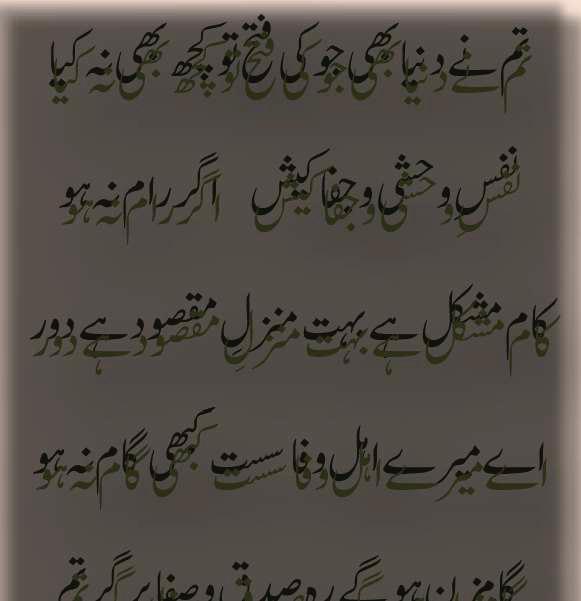 تم نے دنیا بھی جو کی فتح تو کچھ بھی نہ کیا
نفسِ وحشی و جفا کیش اگر رام نہ ہو
کام مشکل ہے بہت منزلِ مقصود ہے دور
اے میرے اہل وفا سست کبھی گام نہ ہو
گامزن ہو گے رہ صدق و صفا پر گر تم